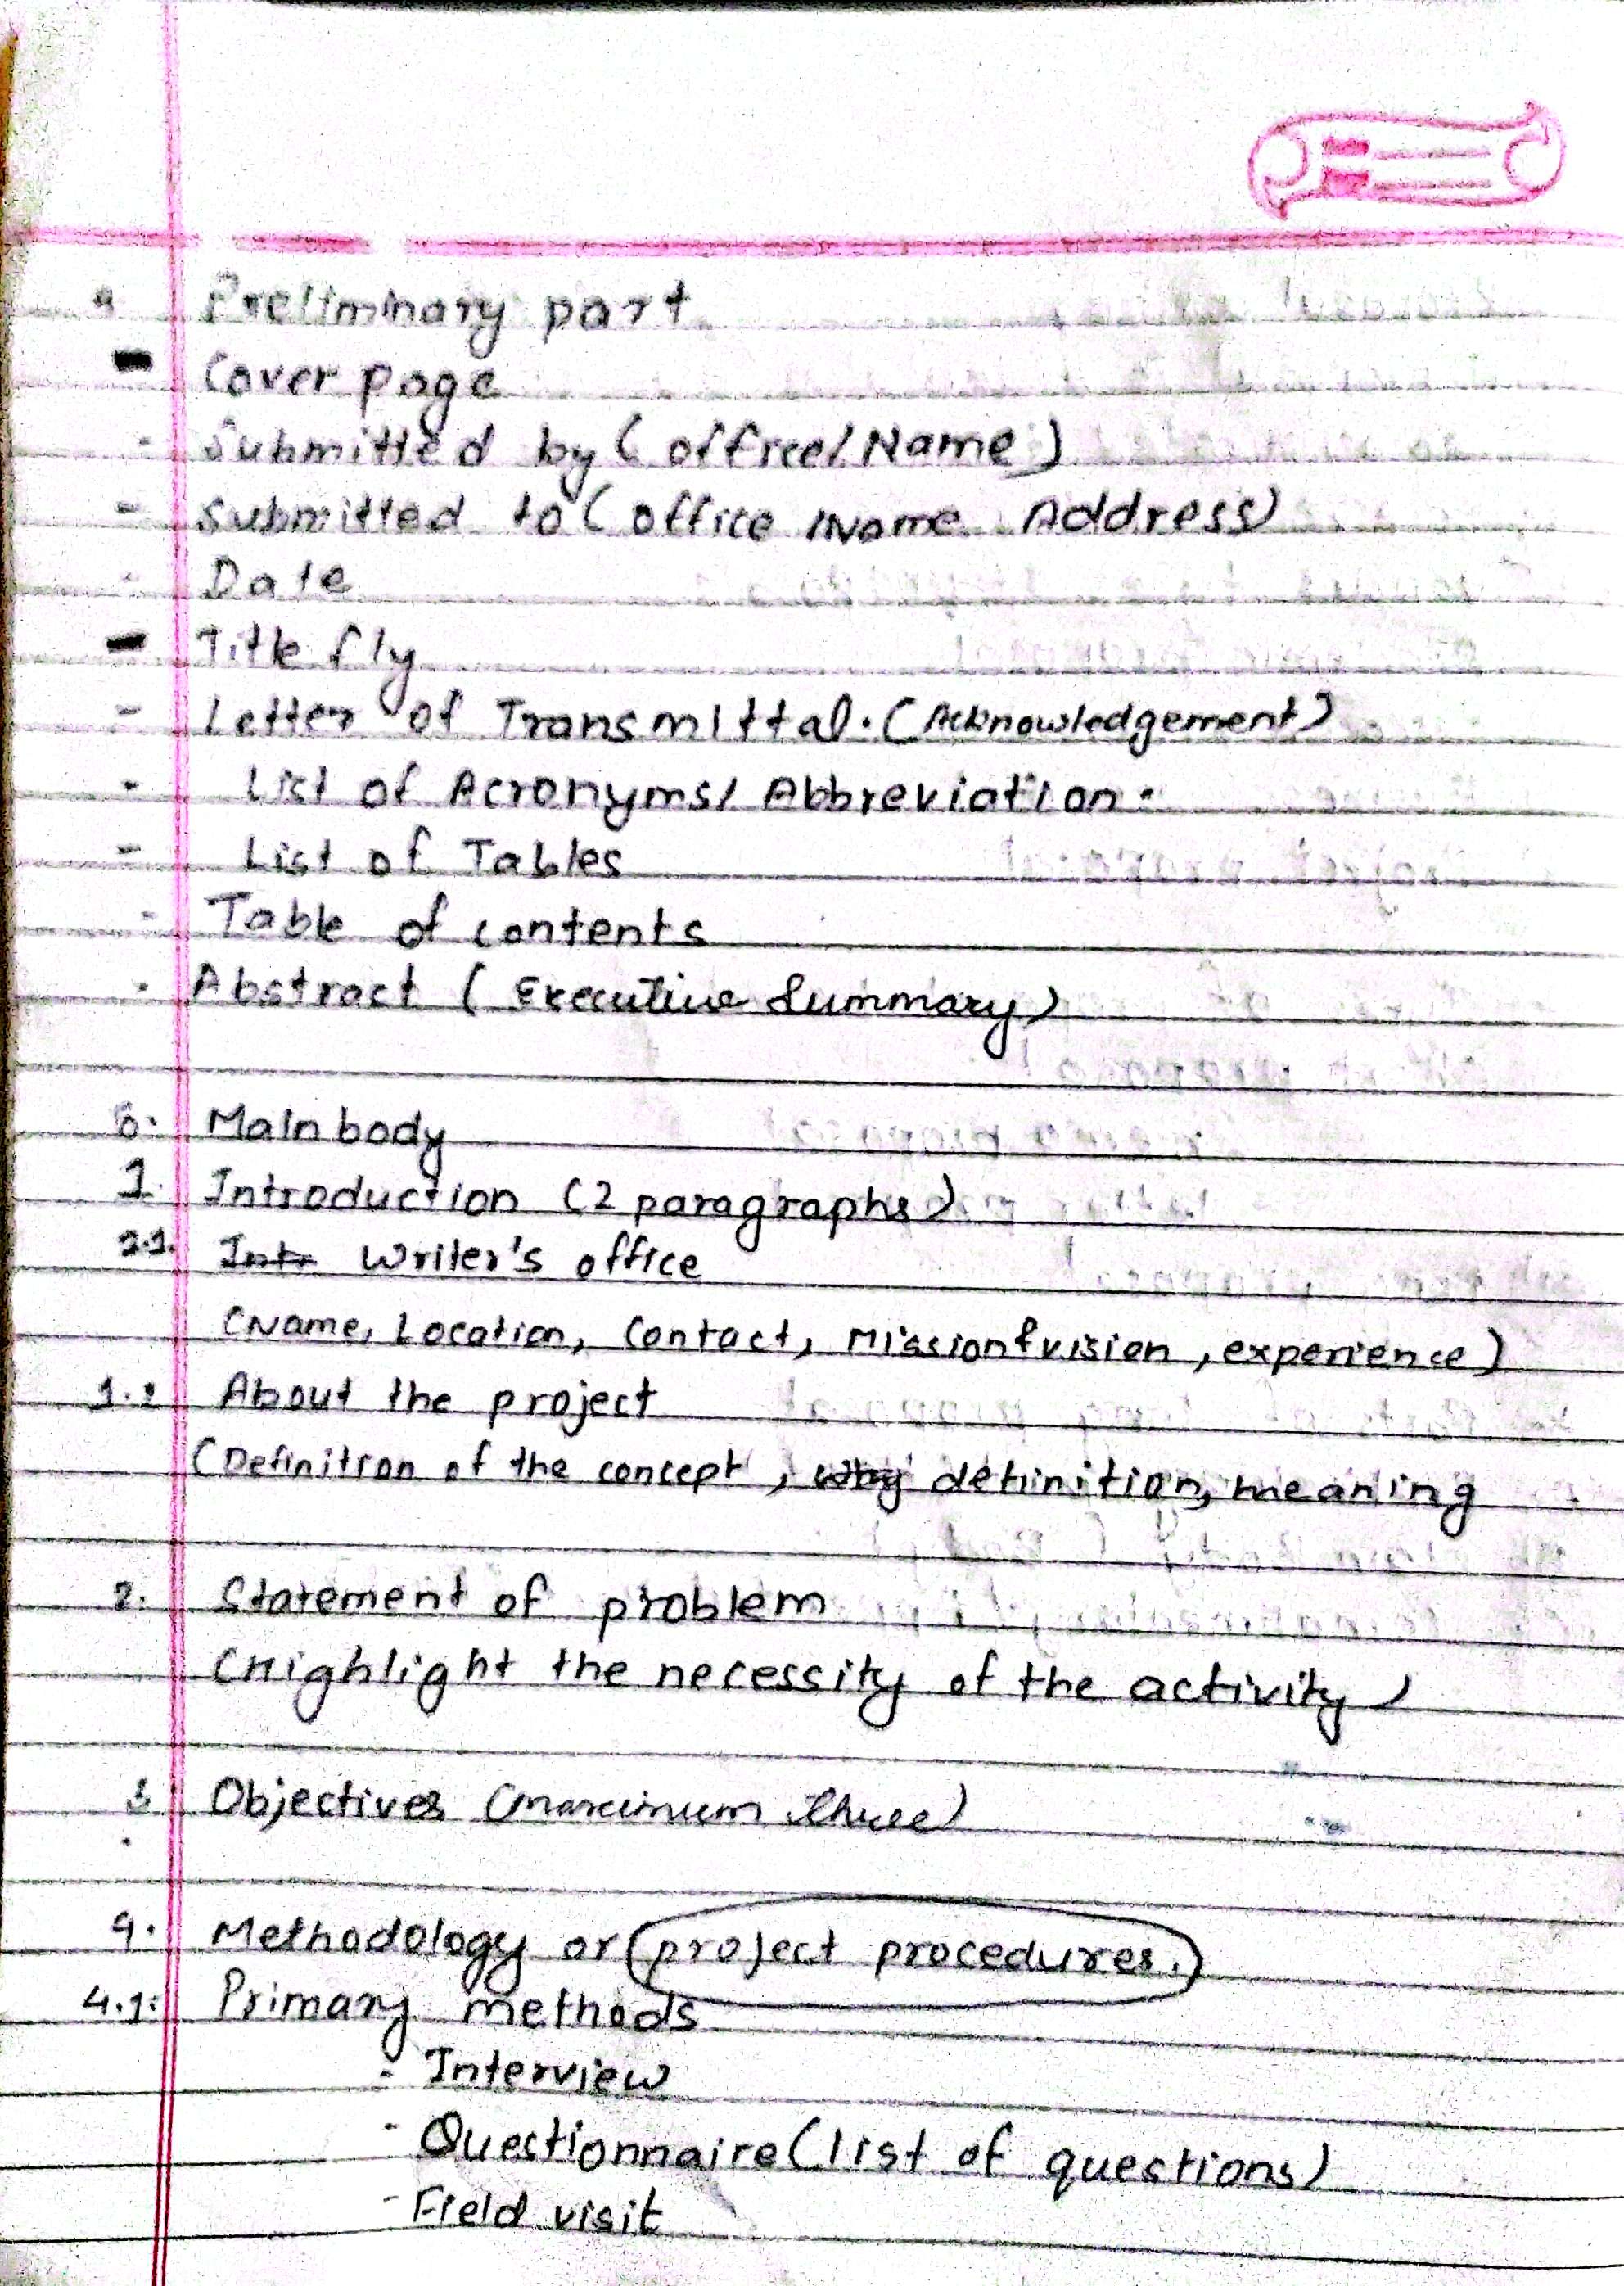 a Preliminary part
- Cover page
- Submitted by ( office/ Name )
- Submitted to ( office Name Address)
- Date
- Title fly
- Letter of Transmittal. (Acknowledgement)
- List of Acronyms/ Abbreviation.
- List of Tables
- Table of contents
- Abstract ( Executive Summary)
b. Main body
1. Introduction (2 paragraphs)
1.1. Intr Writer's office
(Name, Location, Contact, Mission & vision, experience)
1.2 About the project
(Definition of the concept, why definition, meaning
2. Statement of problem
(Highlight the necessity of the activity)
3. Objectives (maximum three)
4. Methodology or (project procedures.)
4.1: Primary methods
- Interview
- Questionnaire (list of questions)
- Field visit